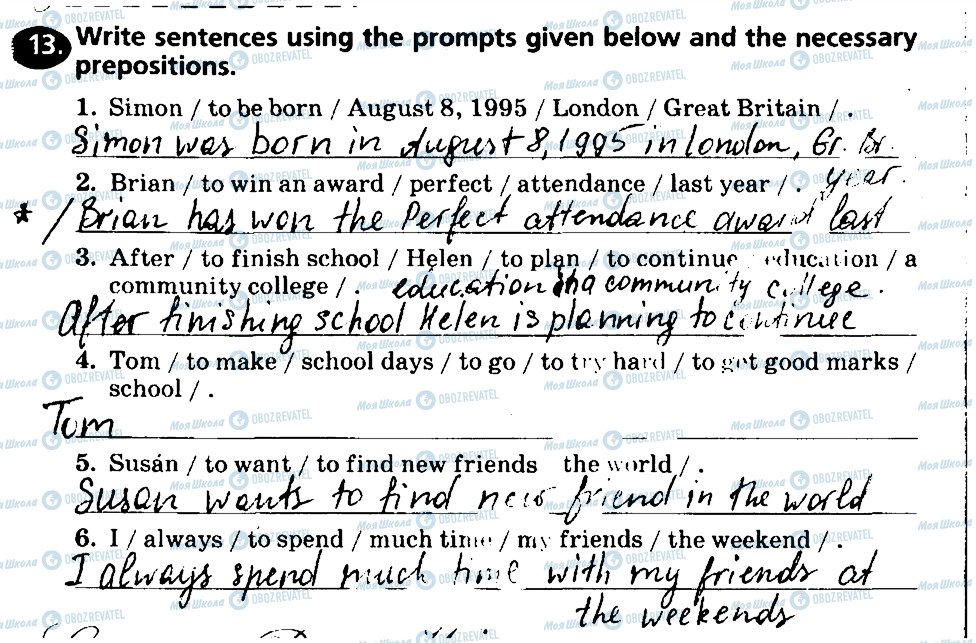 13. Write sentences using the prompts given below and the necessary
prepositions.
1. Simon / to be born / August 8, 1995 / London / Great Britain / .
Simon was born in August 8, 1995 in London, Gr. Br.
2. Brian / to win an award / perfect / attendance / last year / .
year.
* / Brian has won the Perfect attendance award last
3. After / to finish school / Helen / to plan / to continue education / a
community college / .
education in a community college.
After finishing school Helen is planning to continue
4. Tom / to make / school days / to go / to try hard / to get good marks /
school / .
Tom
5. Susan / to want / to find new friends the world / .
Susan wants to find new friend in the world
6. I / always / to spend / much time / my friends / the weekend / .
I always spend much time with my friends at
the weekends
Моя Школа OBOZREVATEL